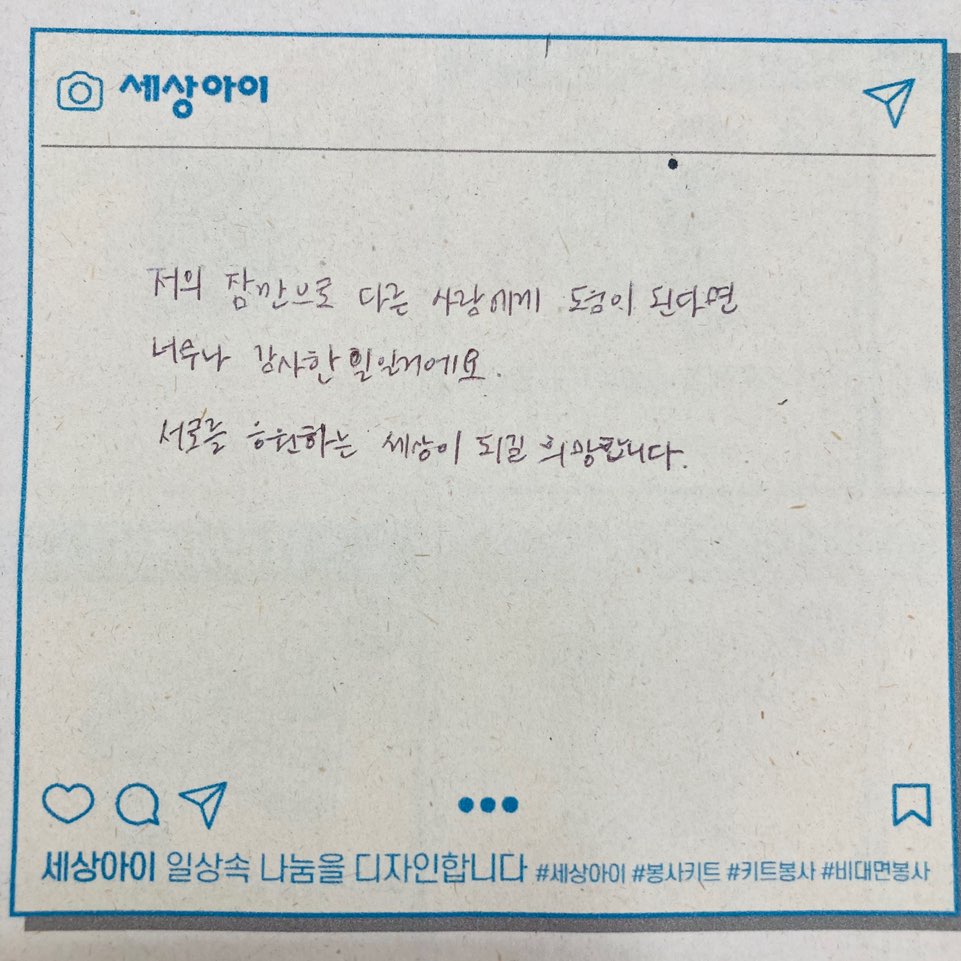 세상아이
저의 잠깐으로 다른 사람에게 도움이 된다면
너무나 감사한 일일거에요.
서로를 응원하는 세상이 되길 희망합니다.
세상아이 일상속 나눔을 디자인합니다 #세상아이 #봉사키트 #키트봉사 #비대면봉사